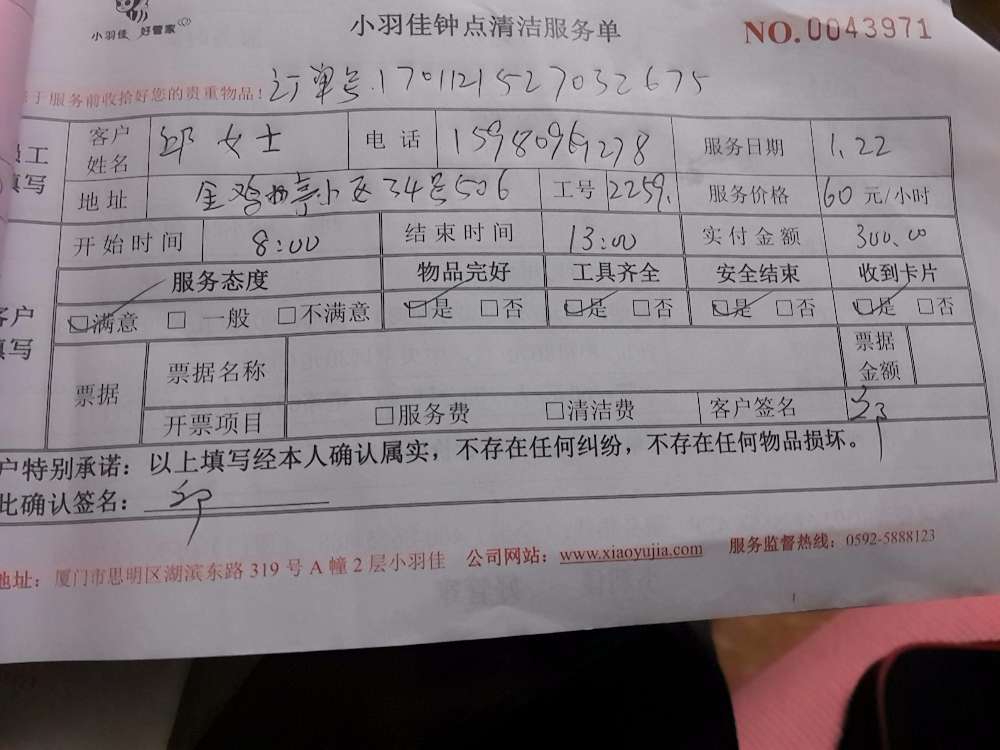 小羽佳 好管家
小羽佳钟点清洁服务单
NO.0043971
于服务前收拾好您的贵重物品! 订单号.1701121527032675
员工填写
客户姓名 邱女士 电话 15980969278 服务日期 1.22
地址 金鸡亭小区34号506 工号 2259. 服务价格 60元/小时
客户填写
开始时间 8:00 结束时间 13:00 实付金额 300.00
服务态度 物品完好 工具齐全 安全结束 收到卡片
☑满意 □一般 □不满意 ☑是 □否 ☑是 □否 ☑是 □否 ☑是 □否
票据 票据名称 票据金额
开票项目 □服务费 □清洁费 客户签名 邱
户特别承诺：以上填写经本人确认属实，不存在任何纠纷，不存在任何物品损坏。
此确认签名：邱
地址：厦门市思明区湖滨东路319号A幢2层小羽佳 公司网站：www.xiaoyujia.com 服务监督热线：0592-5888123